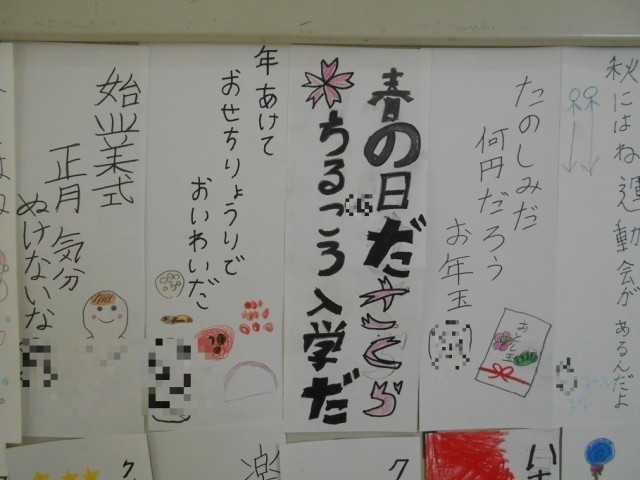 秋にはね運動会があるんだよ
たのしみだ
何円だろう
お年玉
おとし玉
春の日ださくら
ちるころ入学だ
年あけて
おせちりょうりで
おいわいだ
始業式
正月気分
ぬけないな